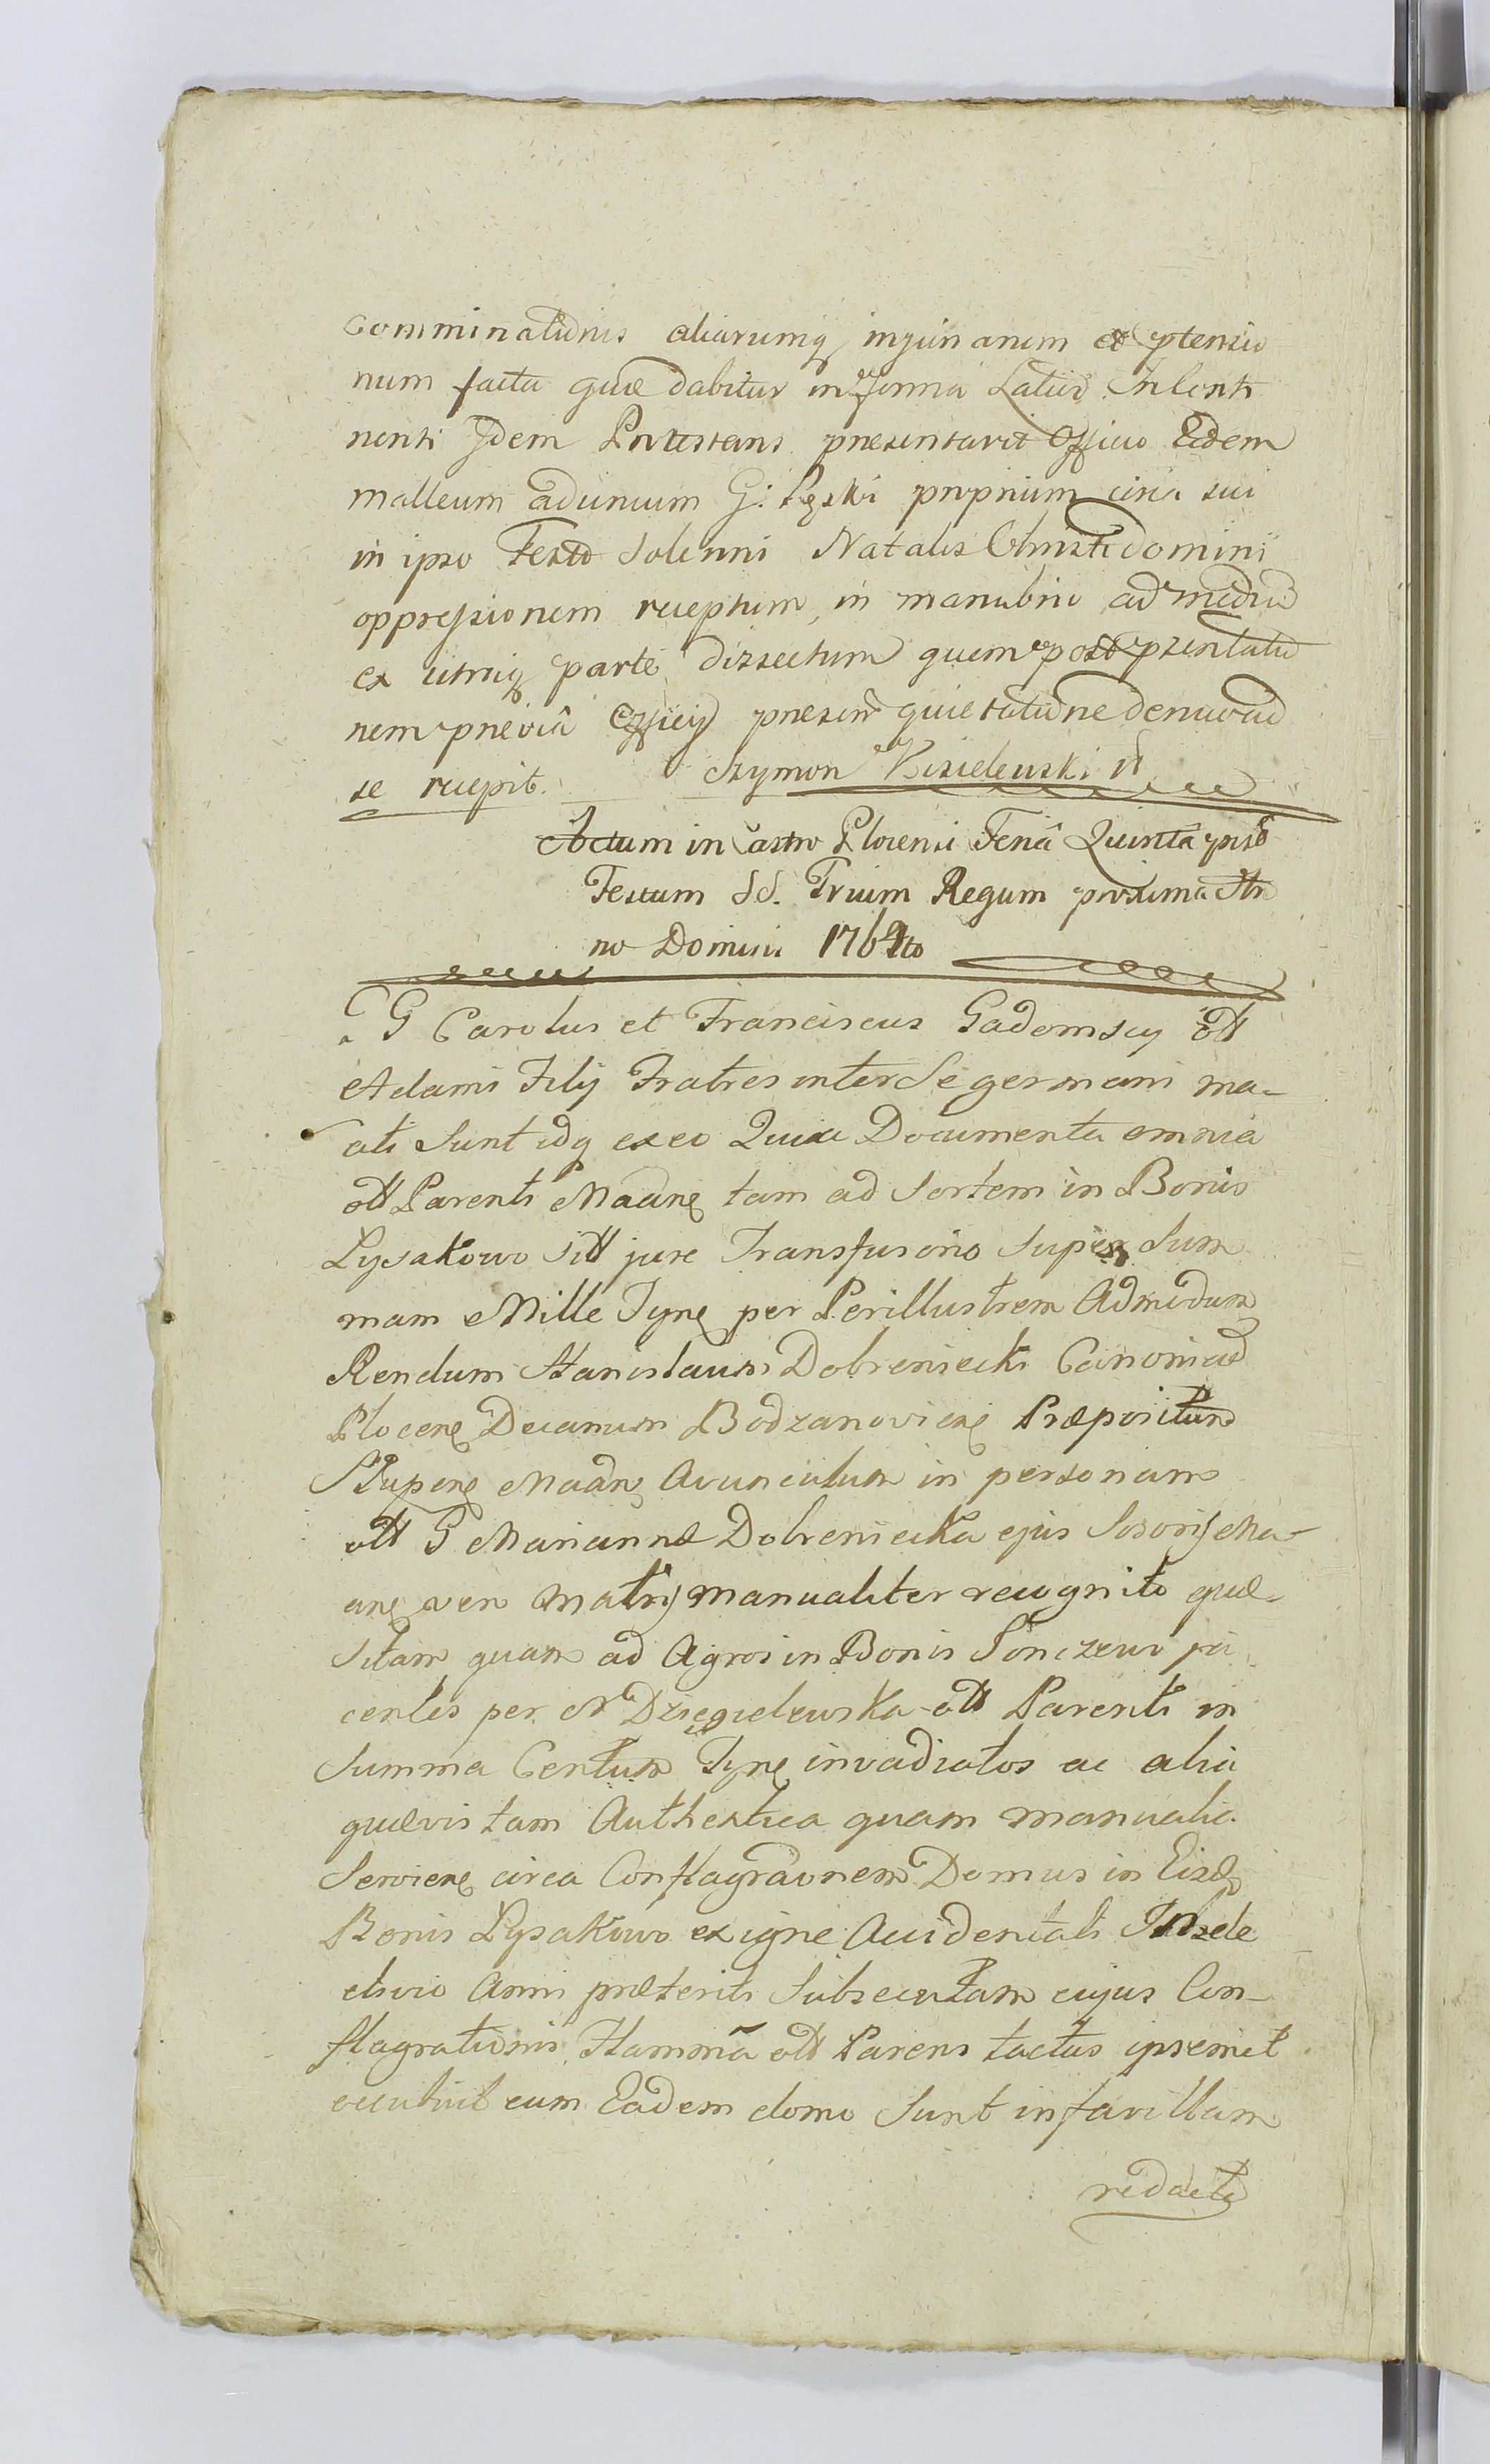 comminationis aliarumq injuriarum et prtensio
num facta quæ dabitur in forma Latiori. In Conti
nenti Idem Protestans presentavit Officio Eidem
malleum aduncum G: Pęski proprium circa sui
in ipso Festo Solenni Natalis Christi Domini
oppressionem receptum, in manubrio ad mediu
ex utraq parte dissectum quem post prsentatio
nem prævia Officij presen quietatione denuo ad
se recepit. Szymon Kisielewski
Actum in Castro Plocensi Feria Quinta post
Festum SS. Trium Regum proxima An
no Domini 1764to
G Carolus et Franciscus Gadomscy olt
Adami Filij Fratres inter Se germani ma-
ati Sunt idq ex eo Quia Documenta omnia
olt Parenti Madne tam ad Sortem in Bonis
Lysakowo Sitt jure Transfusorio Super Sum
mam Mille Tyne per Perillustrem Admodum
Rendum Stanislaum Dobreniecki Canonicu
Plocene Decanum Bodzanoviene Præpositum
Slupene Madne Avunculum in personam
olt G Mariannæ Dobreniecka ejus Sororis Ma-
ane vero Matris manualiter recognito quæ-
Sitam quam ad Agros in Bonis Sonczewo ja
centes per N Dzięgielewska olt Parenti in
Summa Centum Tyne invadiatos ac alia
quævis tam Authentica quam manualia
Serviene circa Conflagraonem Domus in Eisd
Bonis Lysakowo ex igne Accidentali
Anni præteriti Subsecutam cujus Con-
flagrationis Flamma olt Parens tactus ipsemet
occubuit cum Eadem domo Sunt in favillam
redacta